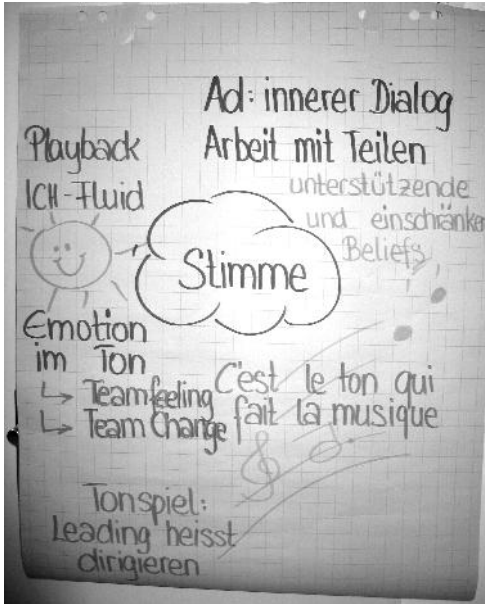 Ad: innerer Dialog
Arbeit mit Teilen
unterstützende
und einschränken
Beliefs
Playback
ICH-Fluid
Stimme
Emotion
im Ton
↳ Teamfeeling
↳ Team Change
C'est le ton qui
fait la musique
Tonspiel:
Leading heisst
dirigieren